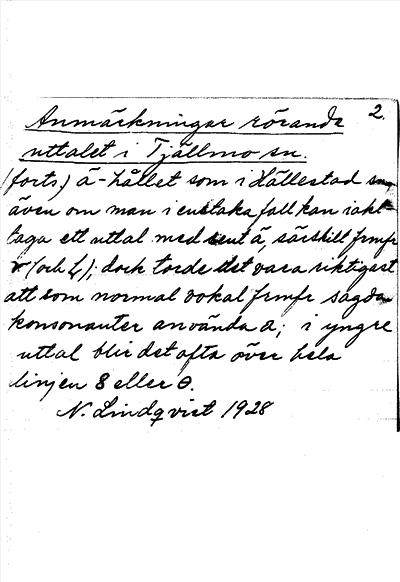 2.
Anmärkningar rörande
uttalet i Tjällmo sn.
(forts.) ä-hållet som i Hällestad sn,
även om man i enstaka fall kan iakt-
taga ett uttal med rent ä, särskilt framför
r (och L); dock torde det vara riktigast
att som normal vokal framför sagda
konsonanter använda a; i yngre
uttal blir det ofta över hela
linjen 8 eller ɵ.
N. Lindqvist 1928